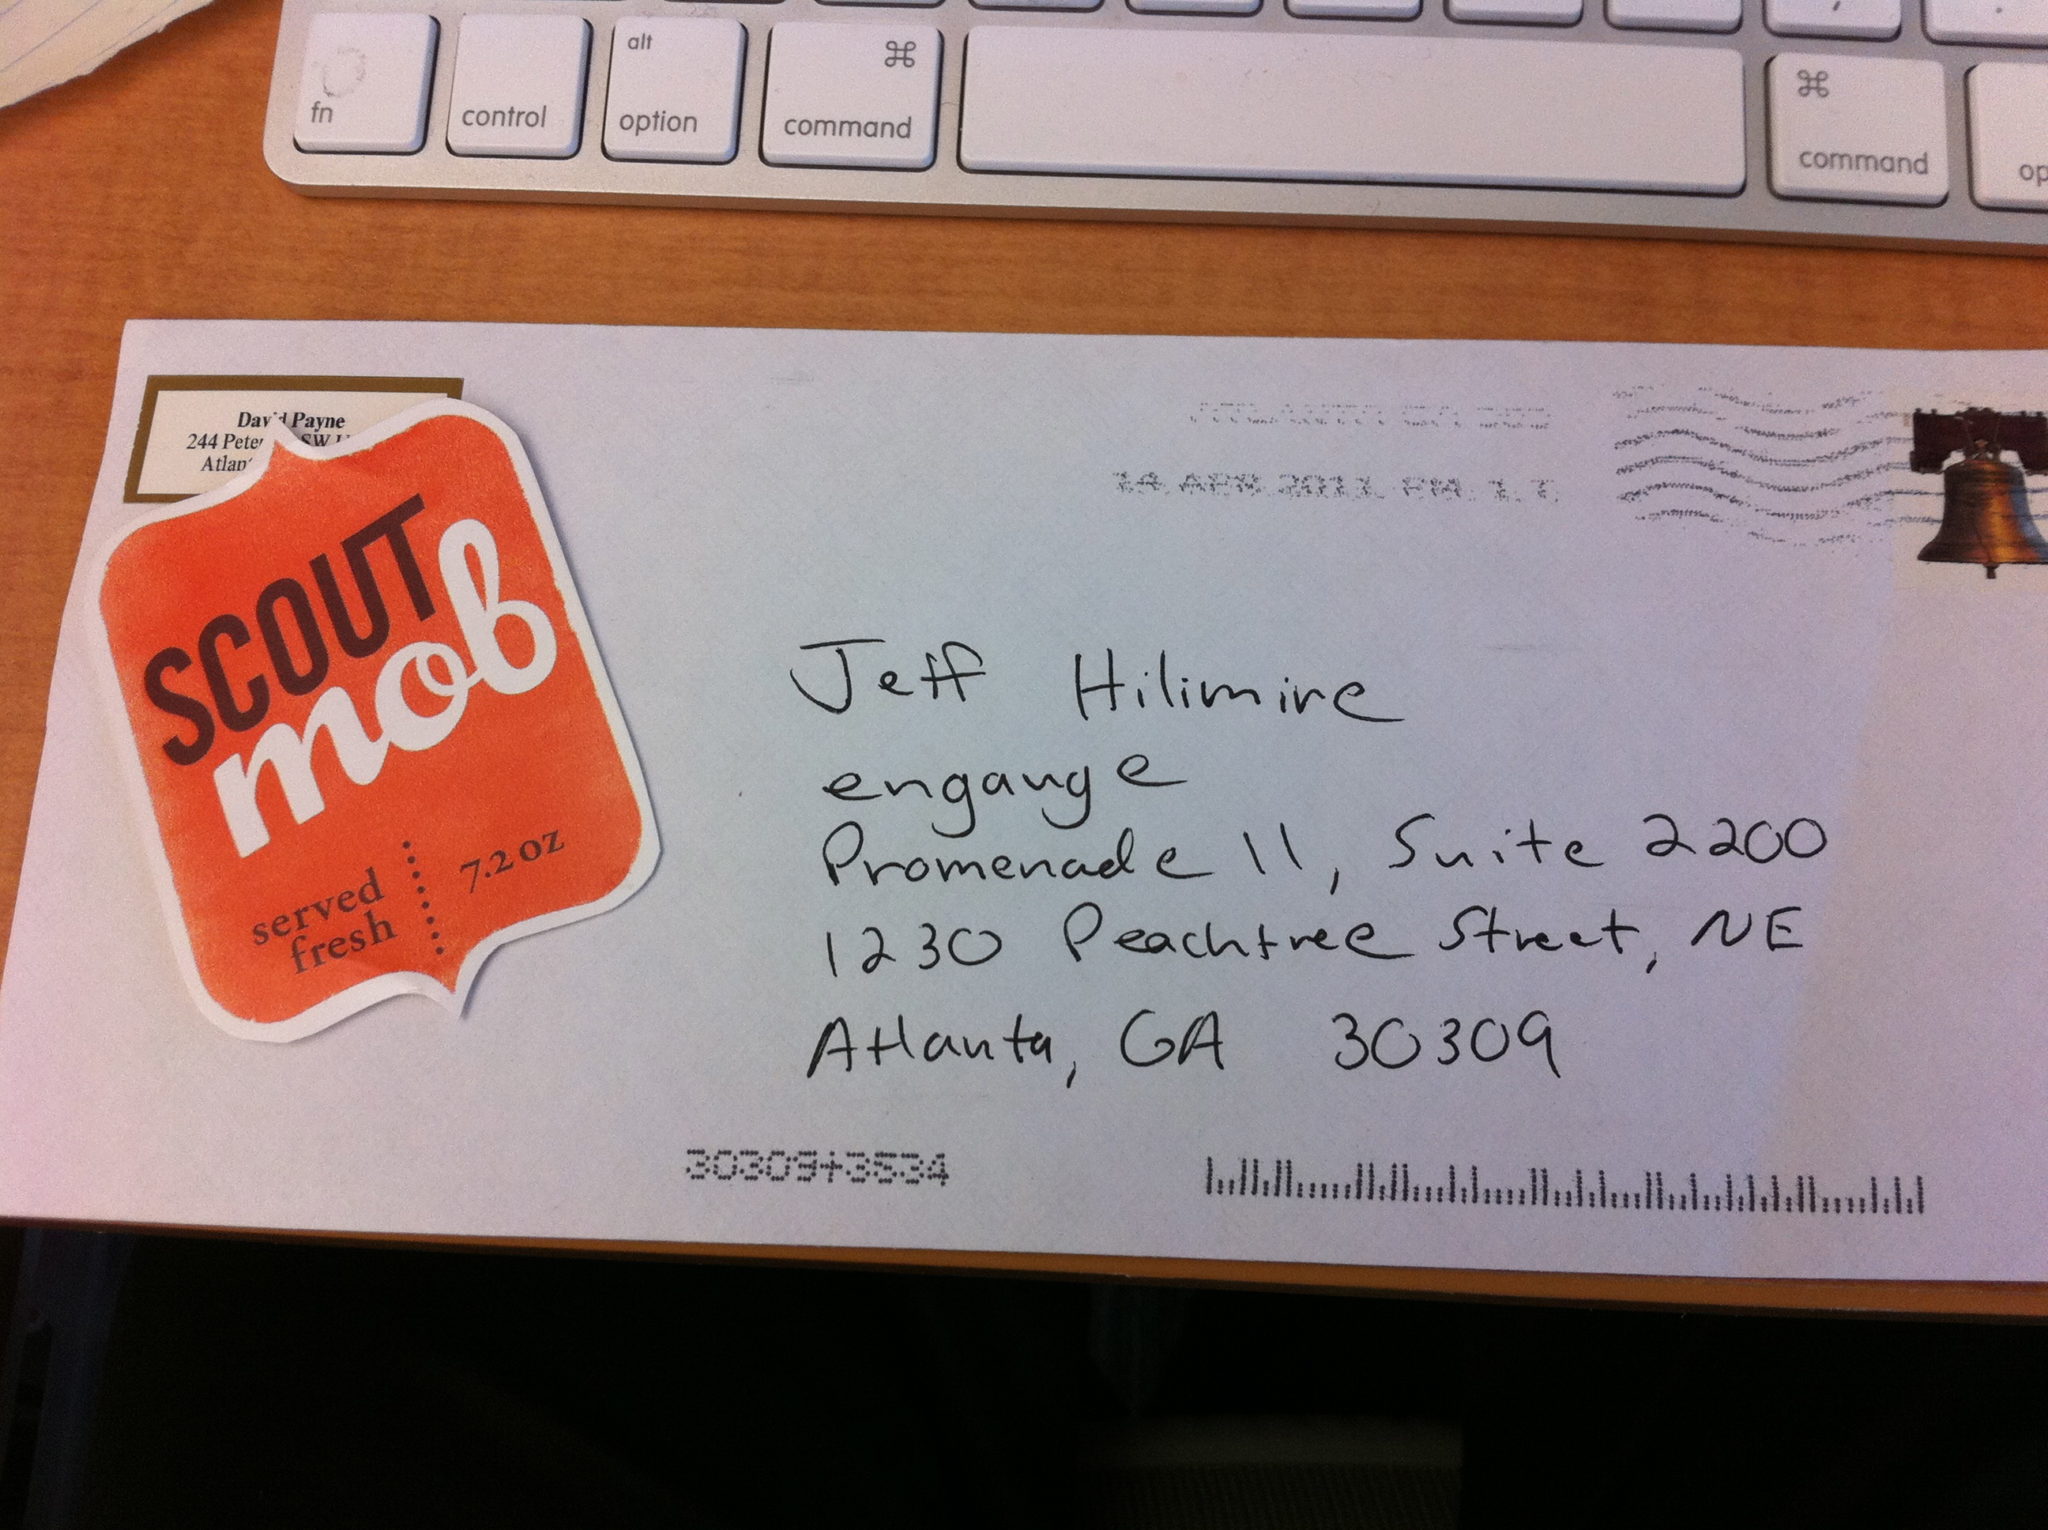 fn
control
alt
option
⌘
command
⌘
command
op
David Payne
244 Peter SW
Atlan
SCOUT
mob
served
fresh
7.2 oz
14 APR 2011 PM 1 T
Jeff Hilimire
engauge
Promenade 11, Suite 2200
1230 Peachtree Street, NE
Atlanta, GA 30309
30309+3534